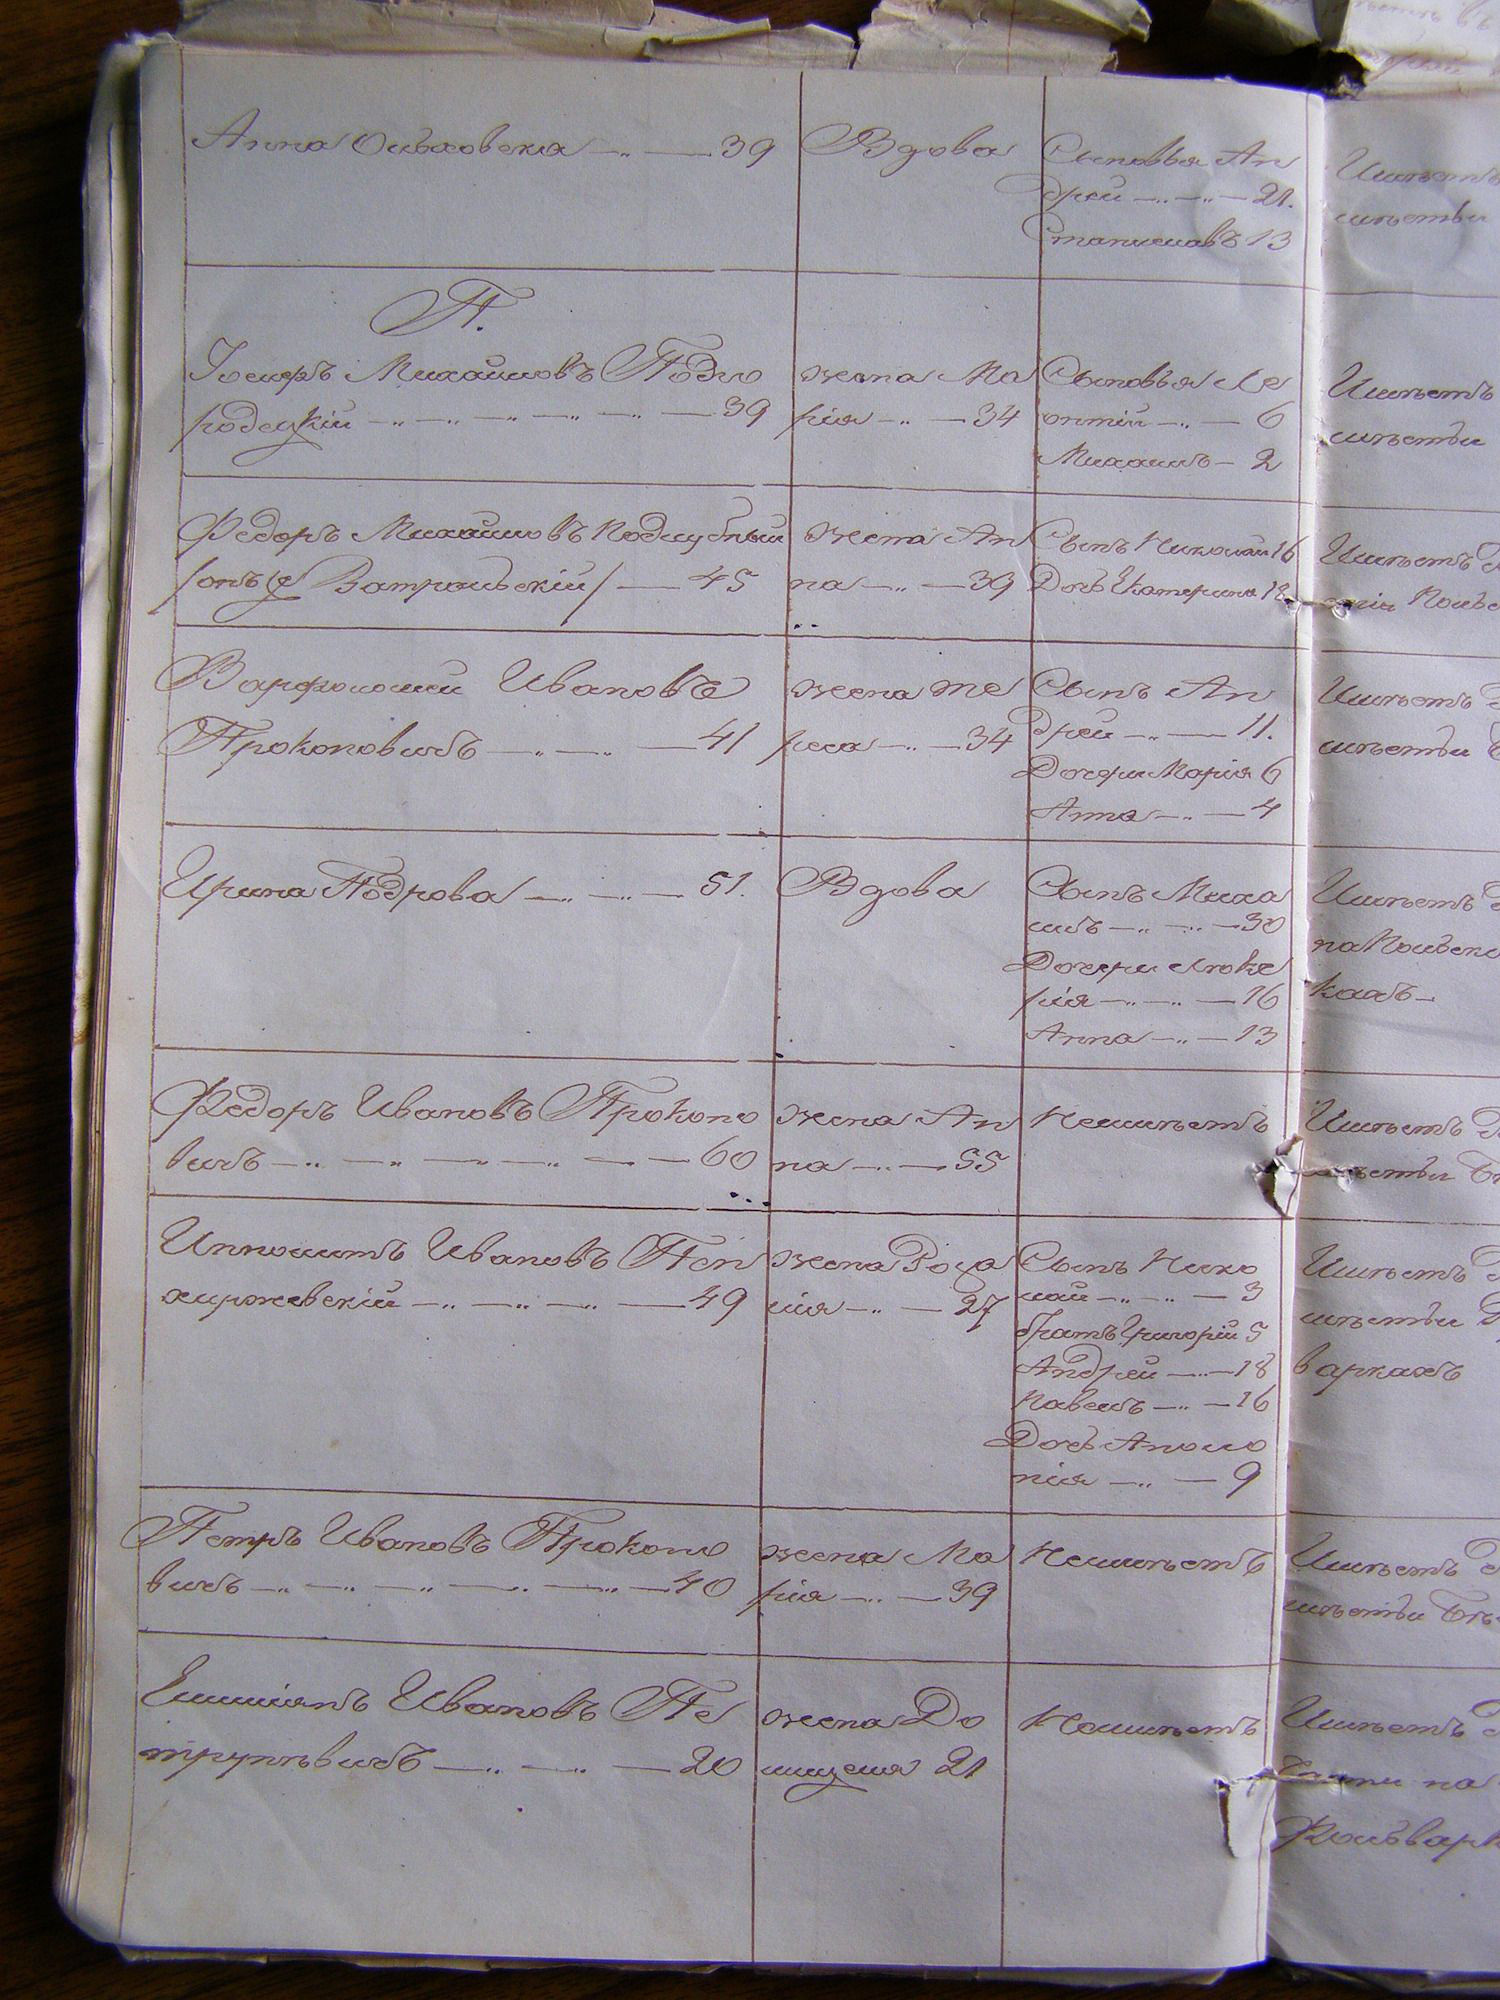 Анна Ольховская — 39
Вдова
Сыновья Ан
дрей — 21.
Станиславъ 13
Имѣетъ
мѣстѣч
П.
Іосифъ Михайловъ Подго
родецкій — 39
жена Ма
рія — 34
Сыновья Ле
онтій — 6
Михаилъ — 2
Имѣетъ
Федоръ Михайловъ Подлубный
/онъ же Ватральскій/ — 45
жена Ан
на — 39
Сынъ Николай 16
Дочь Екатерина 12
Имѣетъ
Варфоломей Ивановъ
Прокоповичъ — 41
жена Те
реса — 34
Сынъ Ан
дрей — 11.
Дочери Марія 6
Анна — 4
Имѣетъ
Ирина Подрова — 51.
Вдова
Сынъ Миха
илъ — 30
Дочери Луке
рія — 16
Анна — 13
Имѣетъ
кахъ
Федоръ Ивановъ Прокопо
вичъ — 60
жена Ан
на — 55
Неимѣетъ
Имѣетъ
Ипполитъ Ивановъ Пен
хержевскій — 49
жена Роза
лія — 27
Сынъ Нико
лай — 3
братъ Григорій 5
Андрей — 18
Павелъ — 16
Дочь Аполо
нія — 9
Имѣетъ
варкахъ
Петръ Ивановъ Прокопо
вичъ — 40
жена Ма
рія — 39
Неимѣетъ
Имѣетъ
Емиліянъ Ивановъ Пе
трунѣвичъ — 20
жена До
мицеля 21
Неимѣетъ
Имѣетъ
на
Фольварк